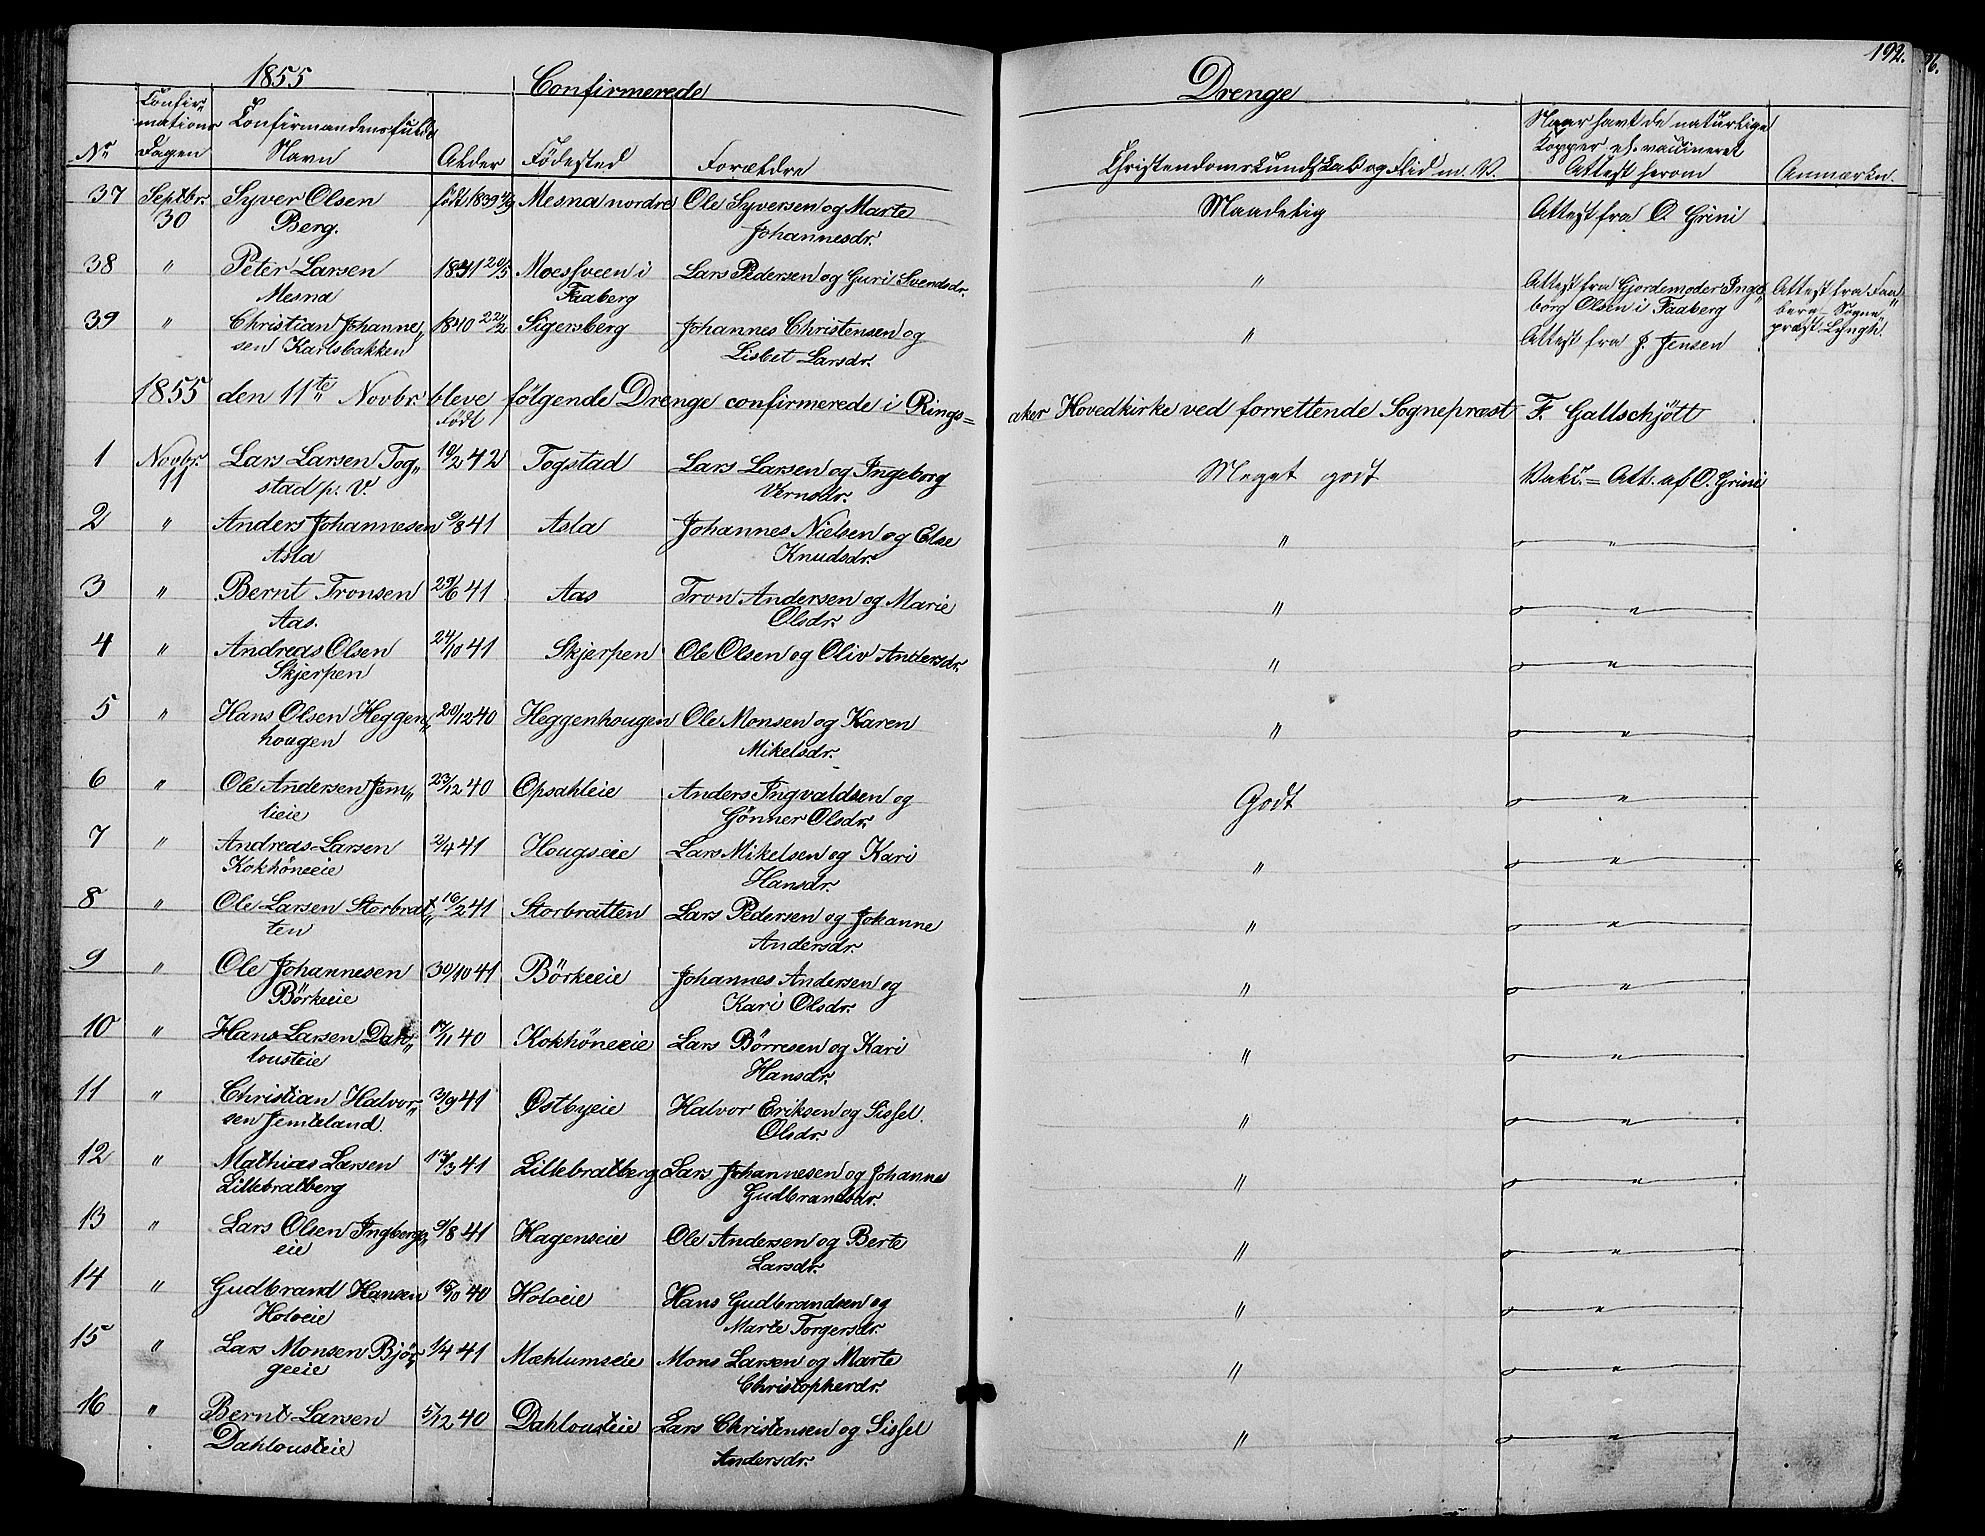 1855 Confirmerede Drenge 192.
No Confirmations Dagen Confirmandens fulde Navn Alder Födested Forældre Christendomskundskab og Flid m. V. Naar havt de naturlige Kopper el. vaccineret Attest herom Anmærkn.
37 Septbr. Syver Olsen födt 1839 Mesna nordre Ole Syversen og Marte Maadelig Attest fra O. Grini
30 Berg. Johannesdr.
38 " Peter Larsen 20/5 Moesfveen i Lars Pedersen og Guri Svendsdr. " Attest fra Gjordemoder Inge„ Attest fra Faa„
Mesna Faaberg borg Olsen i Faaberg berg Sogne„
39 " Christian Johanne„ 1840 22/2 Sigersberg Johannes Christensen og " Attest fra J. Jensen præst Lyngh.
sen Karlsbakken Lisbet Larsdr.
1855 den 11te Novbr. bleve følgende Drenge confirmerede i Rings= aker Hovedkirke ved forrettende Sognepræst F. Gallschjött
födt
1 Novbr. Lars Larsen Tog„ 10/2 42 Togstad Lars Larsen og Ingeborg Meget godt Vakc.= Att. af O. Grini
11 stad p. V. Vernsdr.
2 " Anders Johannesen 9/8 41 Asla Johannes Nielsen og Else " "
Asla Knudsdr.
3 " Bernt Tronsen 29/6 41 Aas Tron Andersen og Marie " "
Aas. Olsdr.
4 " Andreas Olsen 24/10 41 Skjerpen Ole Olsen og Oliv Andersdr. " "
Skjerpen
5 " Hans Olsen Heggen„ 20/12 40 Heggenhougen Ole Monsen og Karen " "
hougen Mikelsdr.
6 " Ole Andersen Jem„ 23/12 40 Opsahleie Anders Ingvaldsen og Godt "
lieie Gönner Olsdr.
7 " Andreas Larsen 2/4 41 Hougseie Lars Mikelsen og Kari " "
Kokhöneeie Hansdr.
8 " Ole Larsen Storbrat„ 10/2 41 Storbratten Lars Pedersen og Johanne " "
ten Andersdr.
9 " Ole Johannesen 30/10 41 Börkeeie Johannes Andersen og " "
Börkeeie Kari Olsdr.
10 " Hans Larsen Dah„ 17/11 40 Kokhöneeie Lars Börresen og Kari " "
lousteie Hansdr.
11 " Christian Halvor„ 3/9 41 Østbyeie Halvor Eriksen og Sissel " "
sen Jemteland. Olsdr.
12 " Mathias Larsen 13/3 41 Lillebratberg Lars Johannesen og Johanne " "
Lillebratberg Gudbrandsdr.
13 " Lars Olsen Ingbergs„ 9/8 41 Hagenseie Ole Andersen og Berte " "
eie Larsdr.
14 " Gudbrand Hansen 15/10 40 Holoeie Hans Gudbrandsen og " "
Holoeie Marte Torgersdr.
15 " Lars Monsen Björ„ 1/4 41 Mæhlumseie Mons Larsen og Marte " "
geeie Christopherdr.
16 " Bernt Larsen 5/12 40 Dahlousteie Lars Christensen og Sissel " "
Dahlousteie Andersdr.